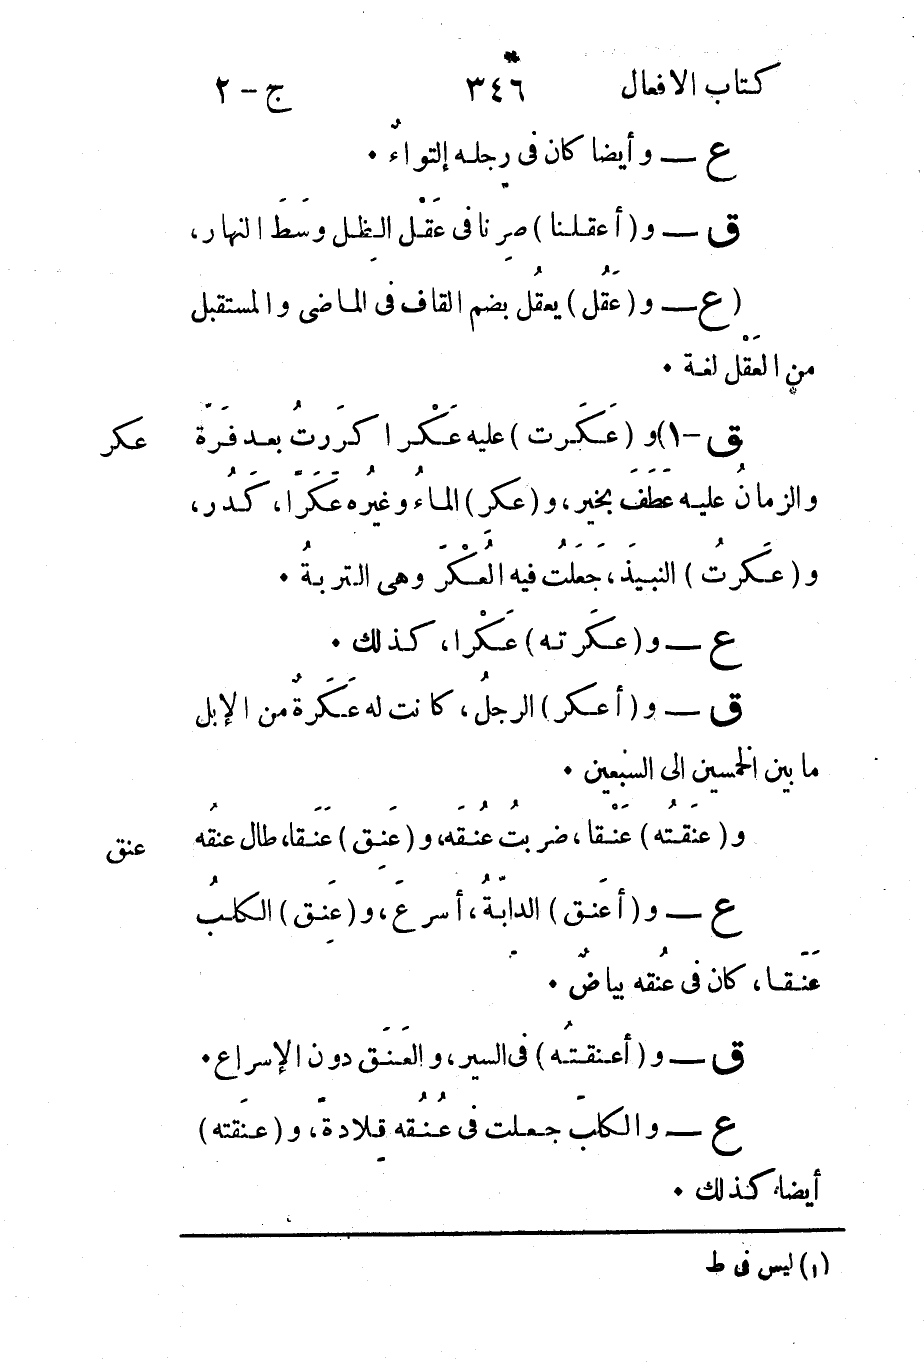 كتاب الافعال ٣٤٦ ج - ٢
ع — وأيضا كان فى رجله إلتواءٌ ٠
ق — و (أعقلنا) صِرنا فى عَقْل الظِل وسَطَ النهار،
(ع — و (عَقُل) يعقُل بضم القاف فى الماضى والمستقبل
من العَقْل لغة ٠
ق - ١) و (عَكَرت) عليه عَكْرا كرَرتُ بعد فَرَّة
عكر
والزمانُ عليه عَطَفَ بخير، و (عكر) الماءُ وغيرُه عَكَرًا، كَدُر،
و (عَكَرتُ) النبيذَ، جَعَلتُ فيه العُكْرَ وهى التربةُ ٠
ع — و (عكَرته) عَكْرا، كذلك ٠
ق — و (أعكر) الرجلُ، كانت له عَكَرةٌ من الإبل
ما بين الخمسين الى السبعين ٠
و (عنَقتُه) عَنْقا، ضربتُ عُنُقَه، و (عَنِق) عَنَقا، طال عنقُه
عنق
ع — و (أعنَق) الدابّةُ، أسرعَ، و (عَنِق) الكلبُ
عَنَقا، كان فى عنُقه بياضٌ ٠
ق — و (أعنقتُه) فى السير، والعَنَق دون الإسراع ٠
ع — والكلبَ جعلت فى عُنُقه قِلادةً، و (عنَقته)
أيضا، كذلك ٠
(١) ليس فى ط